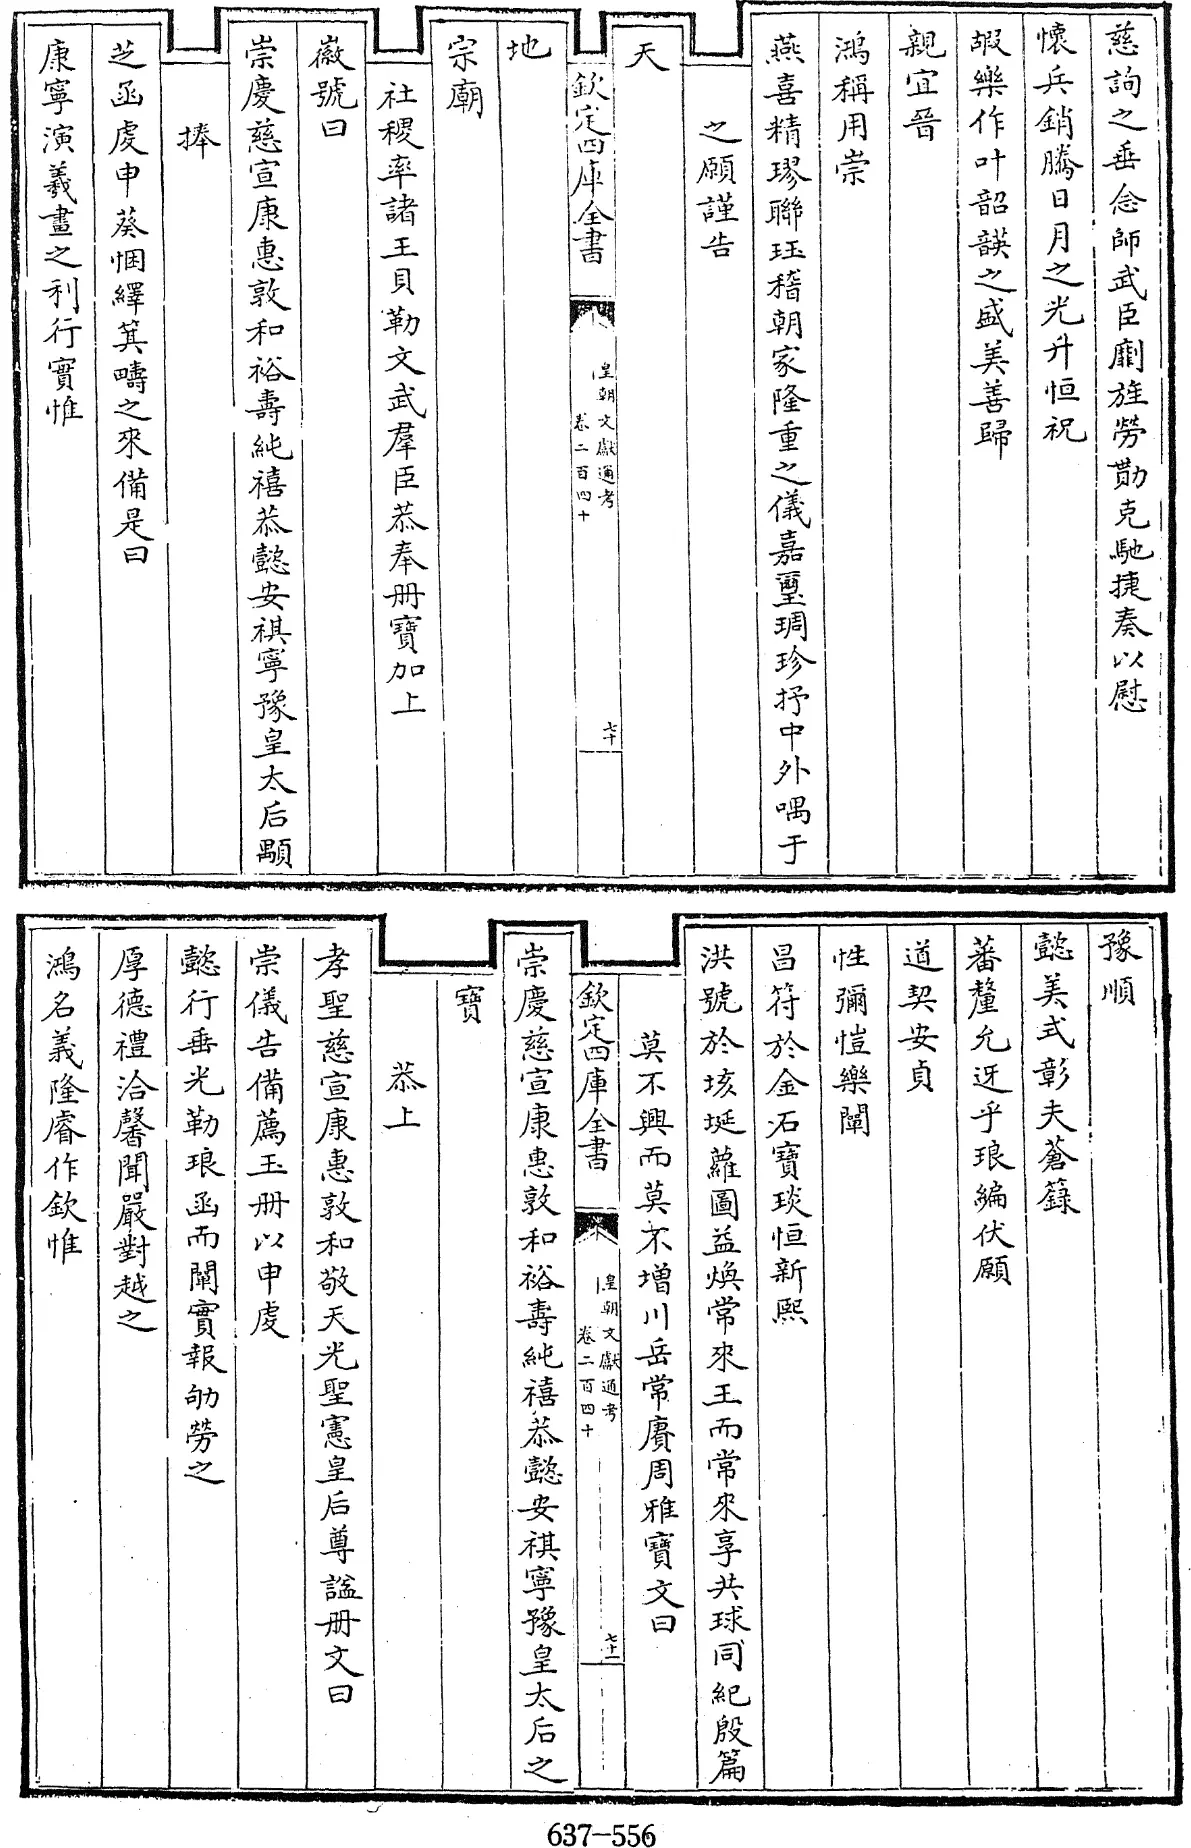 慈詢之垂念師武臣劘旌勞勩克馳捷奏以慰
懷兵銷騰日月之光升恒祝
嘏樂作叶韶韺之盛美善歸
親宜晉
鴻稱用崇
燕喜精璆聯珏稽朝家隆重之儀嘉璽琱珍抒中外喁于
之願謹告
天
欽定四庫全書
皇朝文獻通考
卷二百四十
七十
地
宗廟
社稷率諸王貝勒文武羣臣恭奉册寶加上
徽號曰
崇慶慈宣康惠敦和裕壽純禧恭懿安祺寧豫皇太后顒
捧
芝函虔申葵悃繹箕疇之來備是曰
康寧演羲畫之利行實惟
豫順
懿美式彰夫蒼籙
蕃釐允迓乎琅編伏願
道契安貞
性彌愷樂闡
昌符於金石寶琰恒新熙
洪號於垓埏蘿圖益煥常來王而常來享共球同紀殷篇
莫不興而莫不增川岳常賡周雅寶文曰
欽定四庫全書
皇朝文獻通考
卷二百四十
七十一
崇慶慈宣康惠敦和裕壽純禧恭懿安祺寧豫皇太后之
寶
恭上
孝聖慈宣康惠敦和敬天光聖憲皇后尊諡册文曰
崇儀告備薦玉册以申虔
懿行垂光勒琅函而闡實報劬勞之
厚德禮洽馨聞嚴對越之
鴻名義隆睿作欽惟
637-556